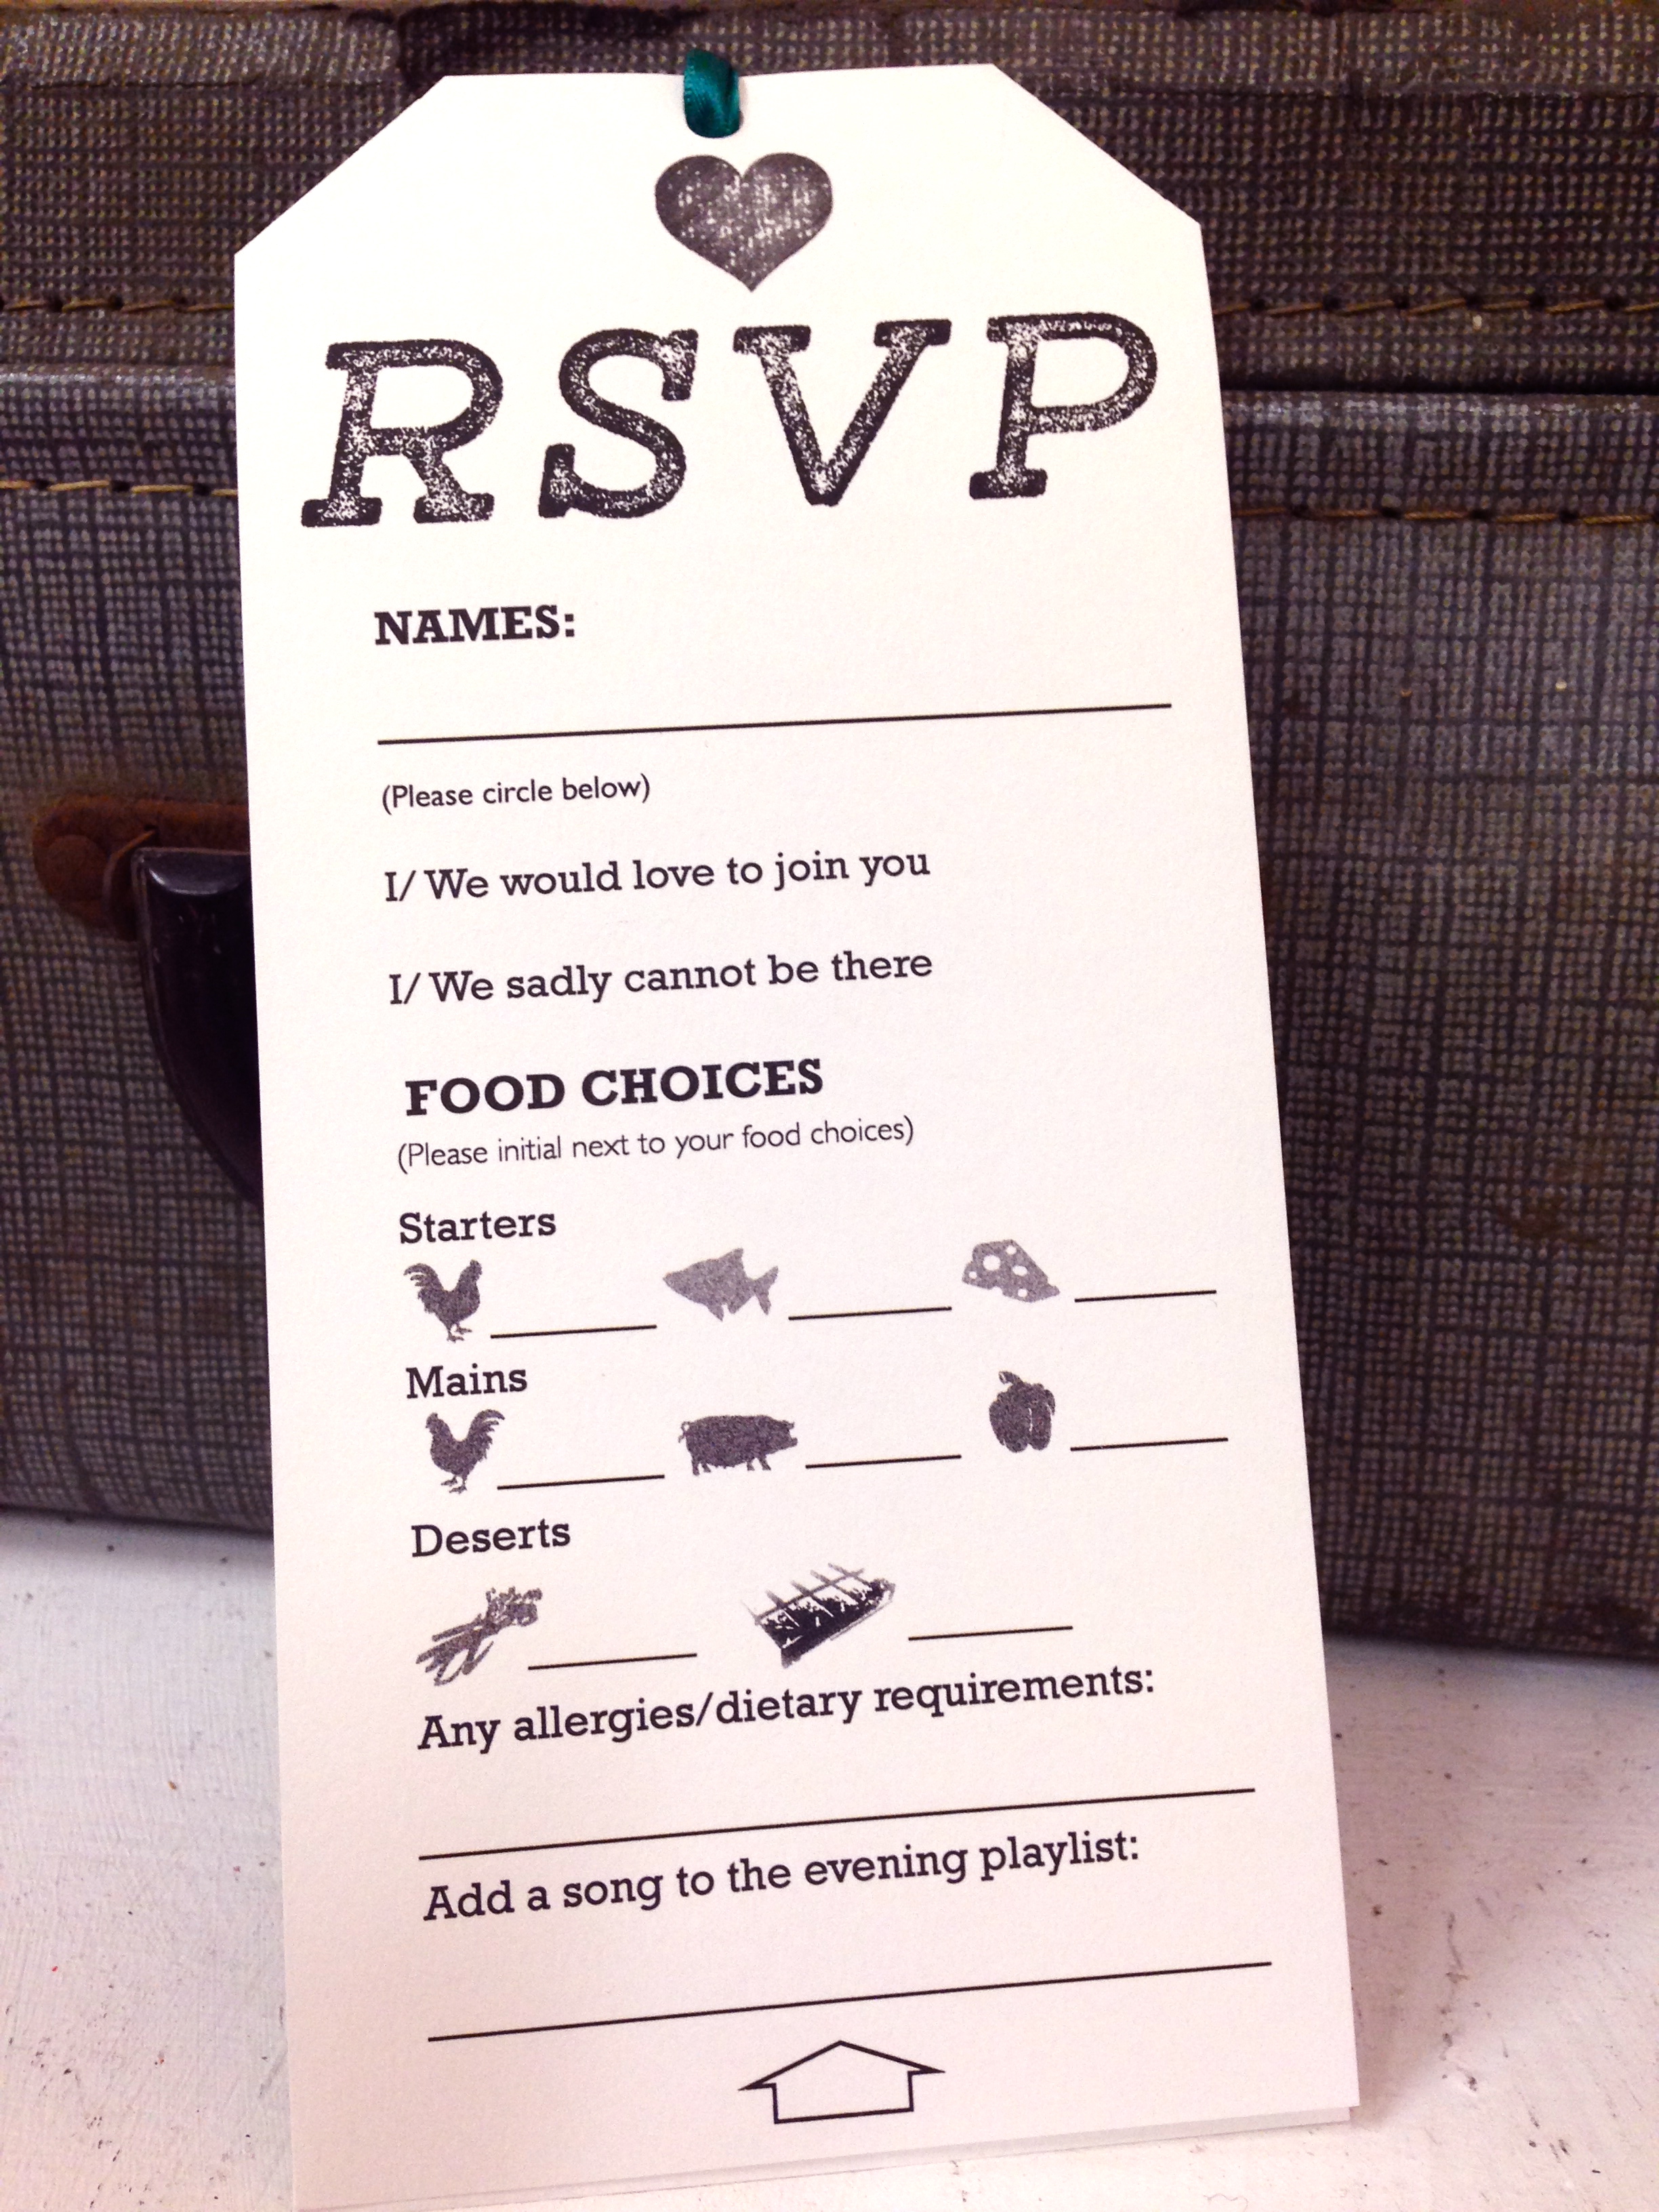 RSVP
NAMES:
(Please circle below)
I/ We would love to join you
I/ We sadly cannot be there
FOOD CHOICES
(Please initial next to your food choices)
Starters
Mains
Deserts
Any allergies/dietary requirements:
Add a song to the evening playlist: